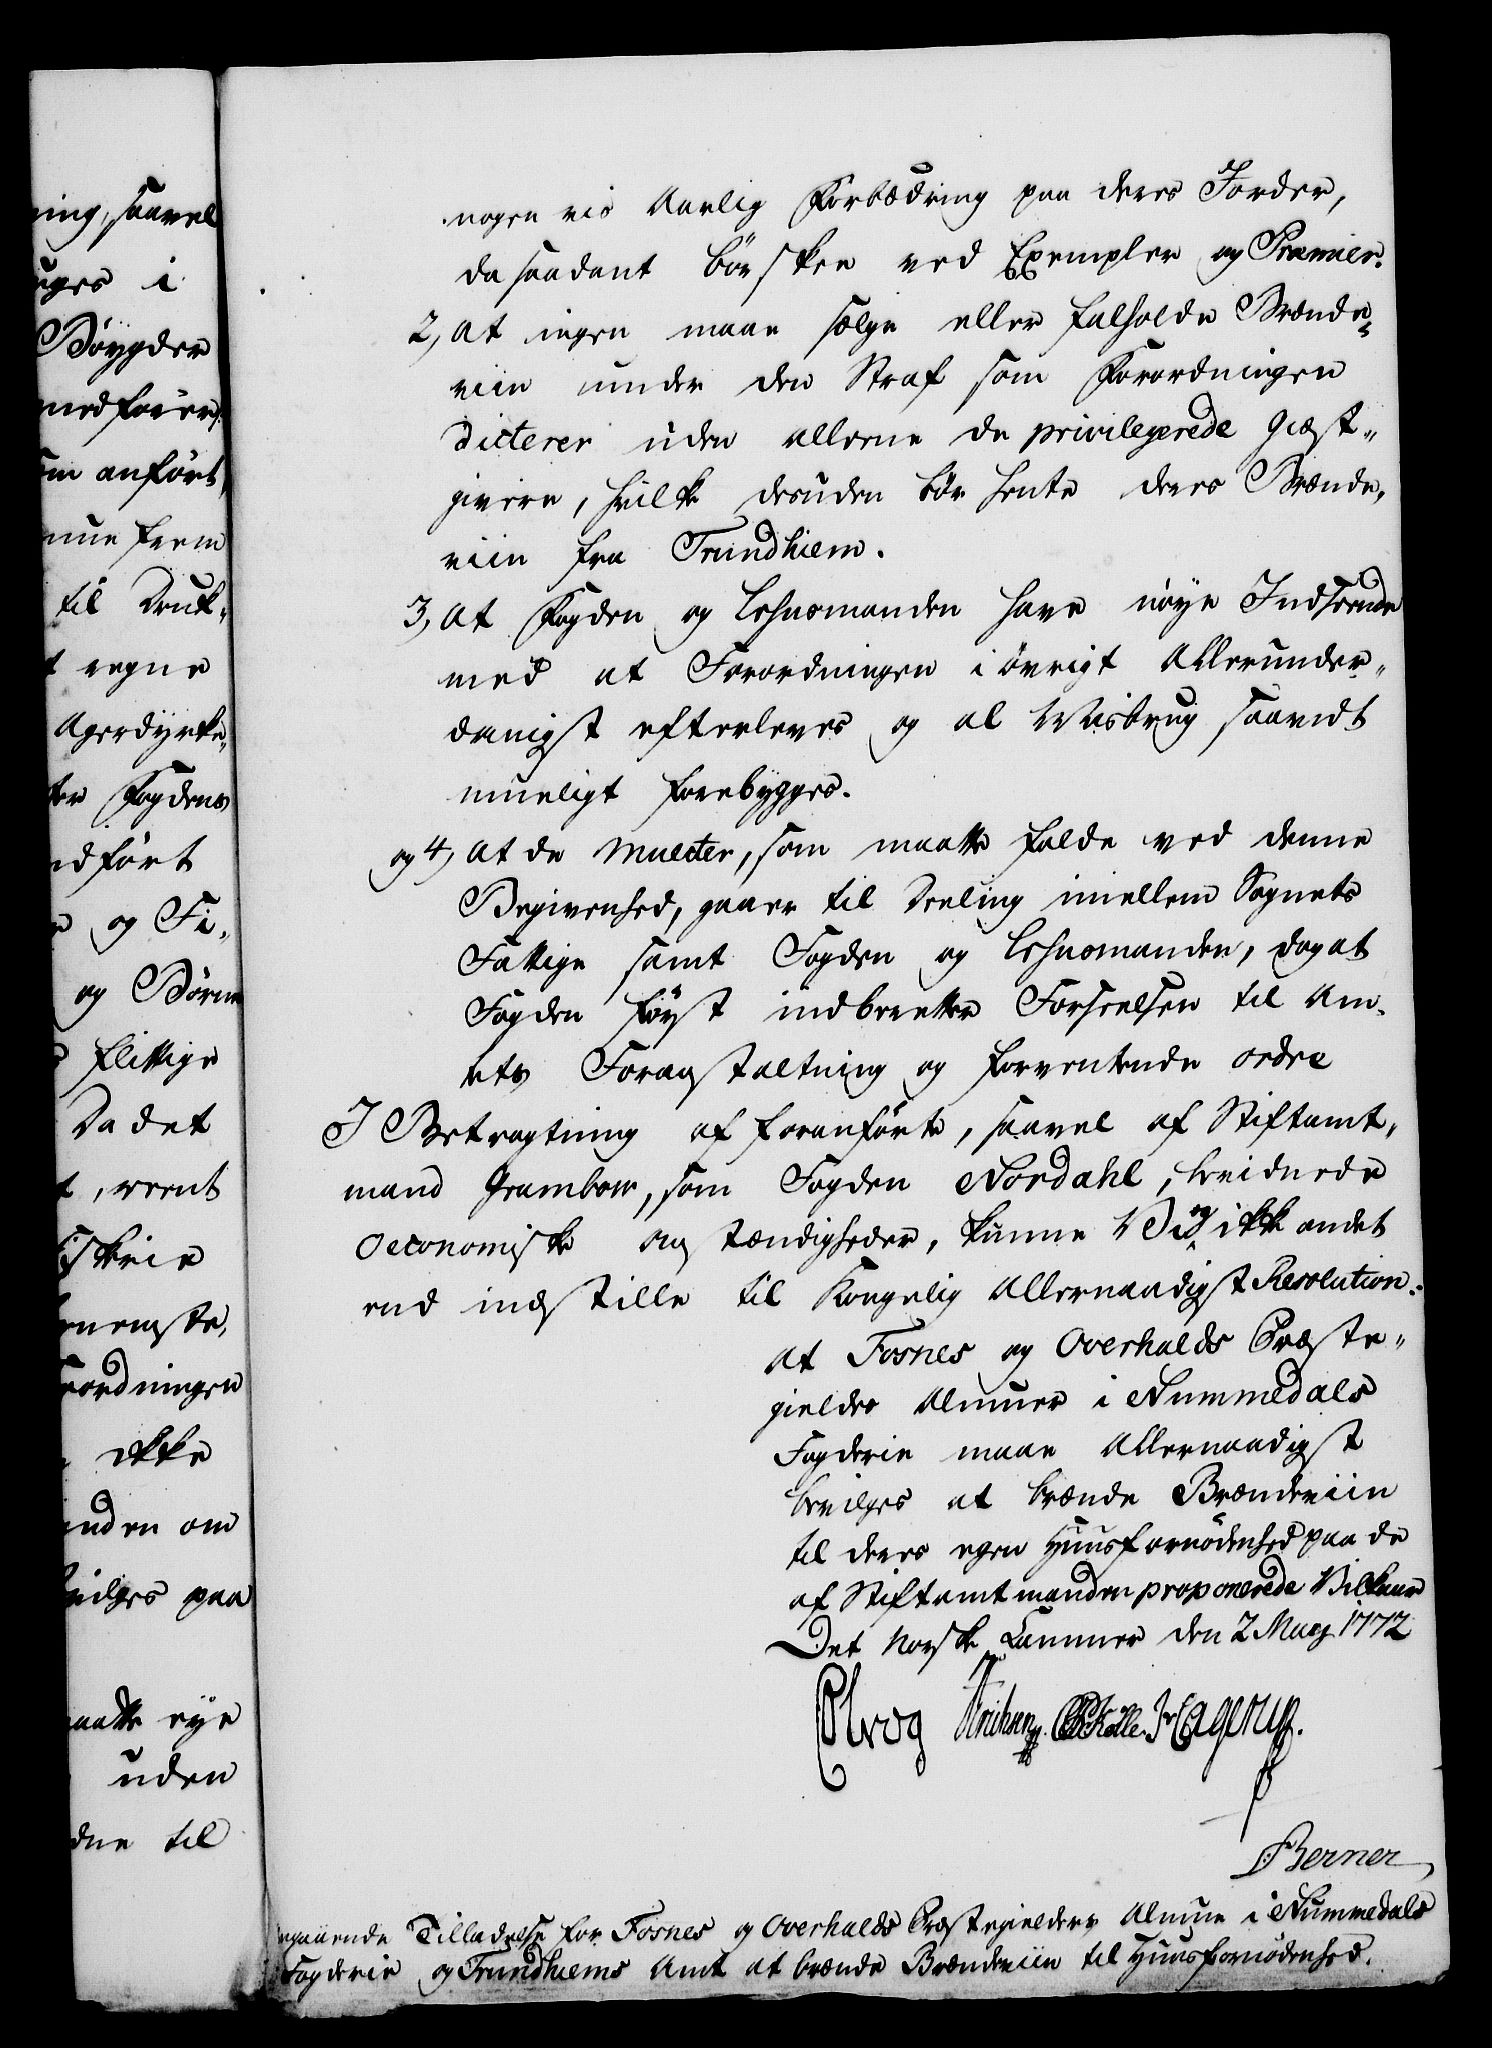 ning, saavel
uges i
Bøygder
medfører,
om anført,
nue frem
til Druk-
t regne
Agerdyrke-
ter Fogdens
ndført
og Fi-
og Børne
flittige
Da det
t, reent
Fiskerie
rnemste,
rordningen
ikke
nden om
vilges paa
aatte eye
uden
dne til
nogen vis Aarlig Forbædring paa deres Jorder,
da saadant bør skee ved Exempler og Præmier.
2, At ingen maae sælge eller falholde Brænde-
viin under den Straf som Forordningen
dicterer uden alleene de privilegerede Giæst-
givere, hvilke desuden bør hente deres Brænde-
viin fra Trundhiem.
3, At Fogden og Lehnsmanden have nøye Indseende
med at Forordningen i øvrigt Allerunder-
danigst efterleves og al Misbrug saavidt
mueligt forebygges.
og 4, At de Mulcter, som maatte falde ved denne
Begivenhed, gaaer til Deeling imellem Sognets
Fattige samt Fogden og Lehnsmanden, dog at
Fogden først indberetter Forseelsen til Am-
tets Foranstaltning og forventende ordre
I Betragtning af foranførte, saavel af Stiftamt-
mand Grambow, som Fogden Nordahl, beviidnede
oeconomiske Omstændigheder, kunne Vi og ikke andet
end indstille til Kongelig Allernaadigst Resolution:
At Fosnes og Overhalds Præste-
gieldes Almuer i Nummedals
Fogderie maae Allernaadigst
bevilges at brænde Brændeviin
til deres egen Huusfornødenhed paa de
af Stiftamtmanden proponerede Vilkaar
Det Norske Kammer den 2 Martj 1772
Holle. Fr Lagerup.
Berner
Tilladelse for Fosnes og Overhalds Præstegielders Almue i Nummedals
Fogderie og Trundhiems Amt at brænde Brændeviin til Huusfornødenhed.